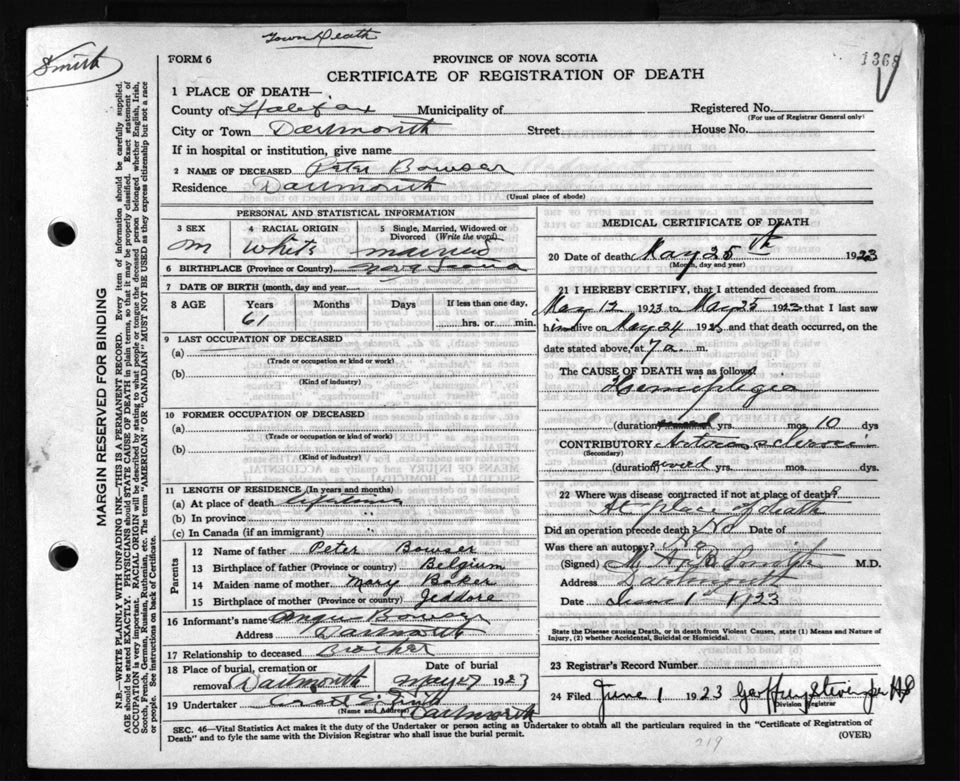 Town Death
Smith
FORM 6
PROVINCE OF NOVA SCOTIA
1368
CERTIFICATE OF REGISTRATION OF DEATH
1 PLACE OF DEATH—
County of Halifax Municipality of
Registered No.
(For use of Registrar General only)
City or Town Dartmouth Street House No.
If in hospital or institution, give name
2 NAME OF DECEASED Peter Bowser
Residence Dartmouth
(Usual place of abode)
PERSONAL AND STATISTICAL INFORMATION
3 SEX 4 RACIAL ORIGIN 5 Single, Married, Widowed or Divorced (Write the word)
M White married
6 BIRTHPLACE (Province or Country) Nova Scotia
7 DATE OF BIRTH (month, day and year)
8 AGE Years Months Days If less than one day,
61 hrs. or min.
9 LAST OCCUPATION OF DECEASED
(a)
(Trade or occupation or kind or work)
(b)
(Kind of industry)
10 FORMER OCCUPATION OF DECEASED
(a)
(Trade or occupation or kind or work)
(b)
(Kind of industry)
11 LENGTH OF RESIDENCE (In years and months)
(a) At place of death Lifetime
(b) In province "
(c) In Canada (if an immigrant) "
Parents
12 Name of father Peter Bowser
13 Birthplace of father (Province or country) Belgium
14 Maiden name of mother Mary Baker
15 Birthplace of mother (Province or country) Jeddore
16 Informant's name Bowser
Address Dartmouth
17 Relationship to deceased Brother
18 Place of burial, cremation or removal Dartmouth
Date of burial May 27 1923
19 Undertaker Smith
(Name and Address) Dartmouth
MEDICAL CERTIFICATE OF DEATH
20 Date of death May 25th 1923
(Month, day and year)
21 I HEREBY CERTIFY, that I attended deceased from
May 12 1923 to May 25 1923 that I last saw
him alive on May 24 1923 and that death occurred, on the
date stated above, at 7 a. m.
The CAUSE OF DEATH was as follows:
Hemiplegia
(duration) yrs. mos. 10 dys
CONTRIBUTORY Arterio sclerosis
(Secondary)
(duration) several yrs. mos. dys
22 Where was disease contracted if not at place of death?
At place of death
Did an operation precede death? No Date of
Was there an autopsy? No
(Signed) M.D.
Address Dartmouth
Date June 1 1923
State the Disease causing Death, or in death from Violent Causes, state (1) Means and Nature of Injury, (2) whether Accidental, Suicidal or Homicidal.
23 Registrar's Record Number
24 Filed June 1 1923
Division Registrar
SEC. 46—Vital Statistics Act makes it the duty of the Undertaker or person acting as Undertaker to obtain all the particulars required in the "Certificate of Registration of
Death" and to fyle the same with the Division Registrar who shall issue the burial permit. (OVER)
219
MARGIN RESERVED FOR BINDING
N.B.—WRITE PLAINLY WITH UNFADING INK—THIS IS A PERMANENT RECORD. Every item of information should be carefully supplied.
AGE should be stated EXACTLY. PHYSICIANS should STATE CAUSE OF DEATH in plain terms, so that it may be properly classified. Exact statement of
OCCUPATION is very important. RACIAL ORIGIN will be described by stating to what people or tongue the deceased person belonged whether English, Irish,
Scotch, French, German, Russian, Ruthenian, etc. The terms "AMERICAN" or "CANADIAN" MUST NOT BE USED as they express citizenship but not a race
or people. See instructions on back of Certificate.